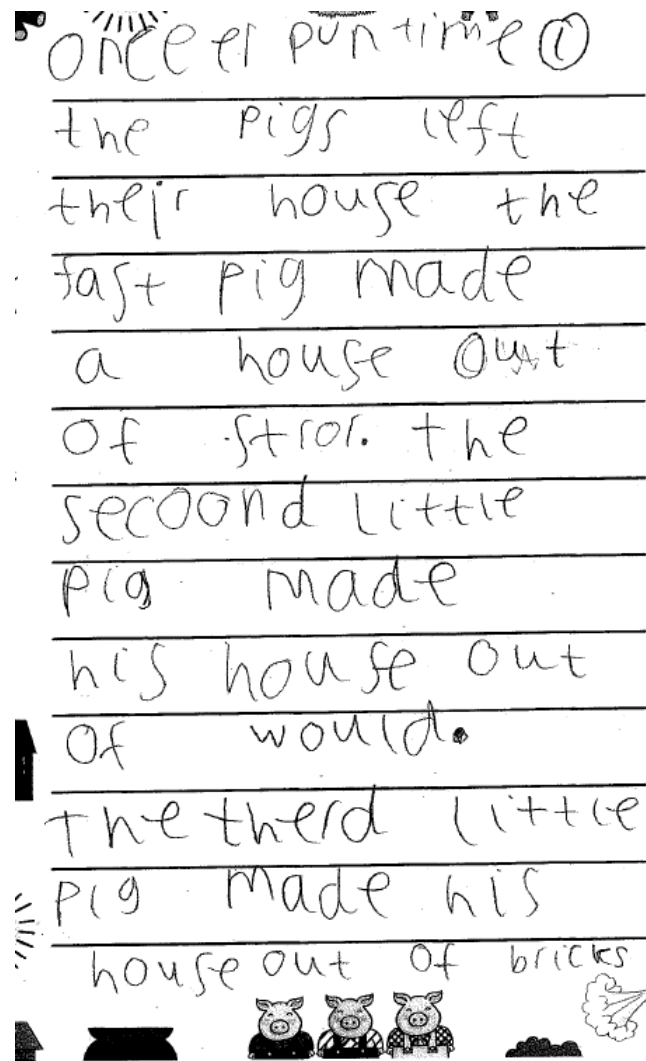 Once er pun time ①
the pigs left
their house the
fast pig made
a house out
of stror. the
secoond little
pig made
his house out
of would.
the therd little
pig made his
house out of bricks